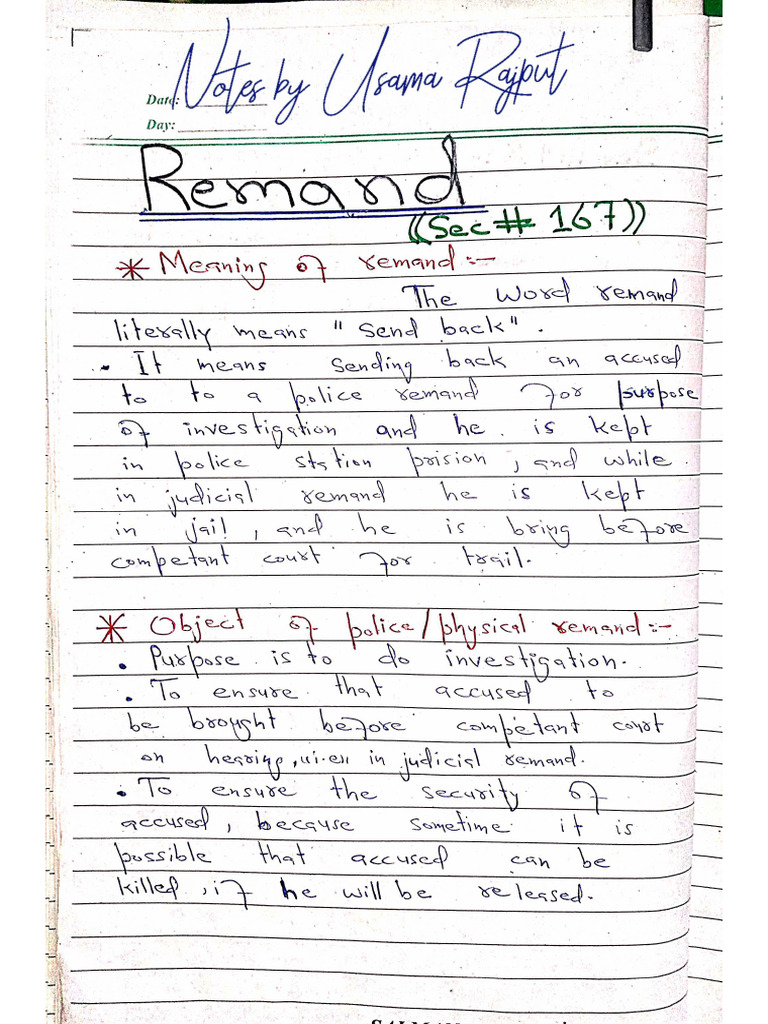 Notes by Usama Rajput
Date:
Day:
Remand
((Sec # 167))
* Meaning of remand :-
The word remand
literally means "send back".
• It means sending back an accused
to to a police remand for purpose
of investigation and he is kept
in police station prision, and while
in judicial remand he is kept
in jail, and he is bring before
competant court for trail.
* Object of police/physical remand :-
• Purpose is to do investigation.
• To ensure that accused to
be brought before competant court
on hearing, in judicial remand.
• To ensure the security of
accused, because sometime it is
possible that accused can be
killed, if he will be released.